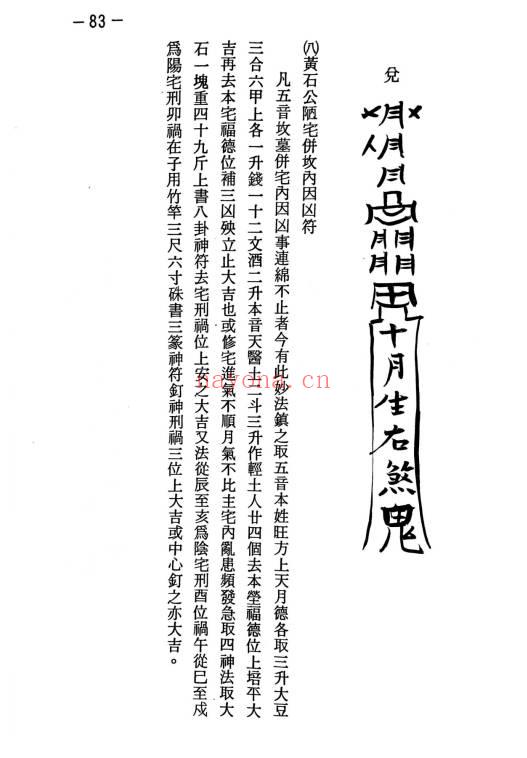 －83－
兌
十月生右煞鬼
(八)黃石公陋宅併坟內因凶符
凡五音坟墓併宅內因凶事連綿不止者今有此妙法鎮之取五音本姓旺方上天月德各取三升大豆
三合六甲上各一升錢一十二文酒二升本音天醫土二斗三升作輕土人廿四個去本塋福德位上培平大
吉再去本宅福德位補三凶殃立止大吉也或修宅進氣不順月氣不比主宅內亂患頻發急取四神法取大
石一塊重四十九斤上書八卦神符去宅刑禍位上安之大吉又法從辰至亥爲陰宅刑酉位禍午從巳至戍
爲陽宅刑卯禍在子用竹竿三尺六寸硃書三篆神符釘神刑禍三位上大吉或中心釘之亦大吉。
nayona.cn